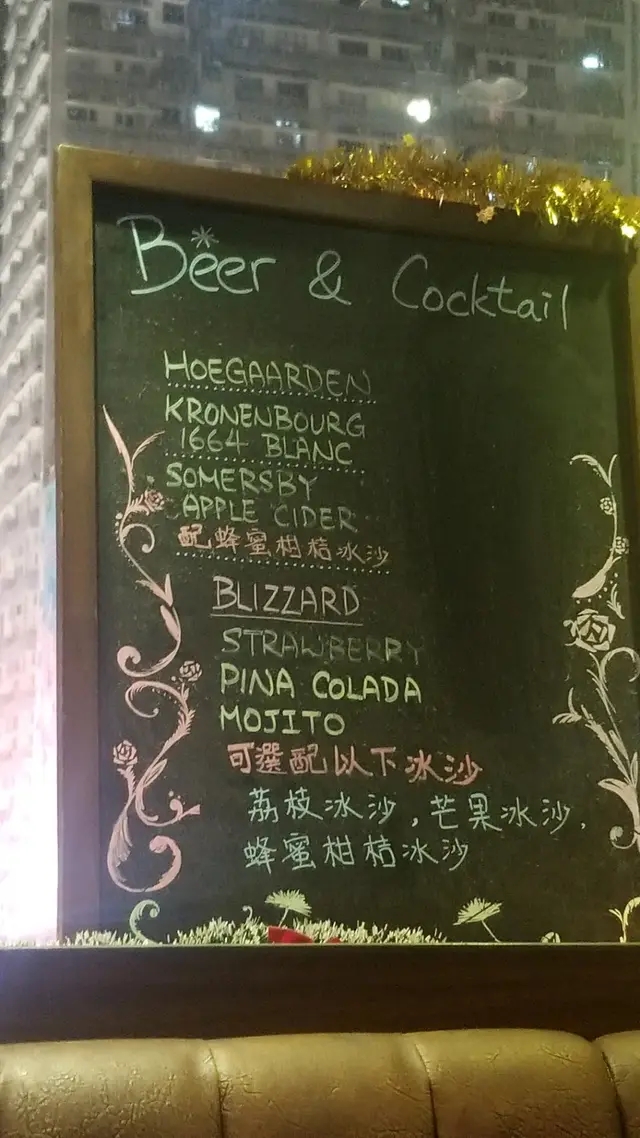 Beer & Cocktail
HOEGAARDEN
KRONENBOURG
1664 BLANC
SOMERSBY
APPLE CIDER
配蜂蜜柑桔冰沙
BLIZZARD
STRAWBERRY
PINA COLADA
MOJITO
可選配以下冰沙
荔枝冰沙,芒果冰沙,
蜂蜜柑桔冰沙